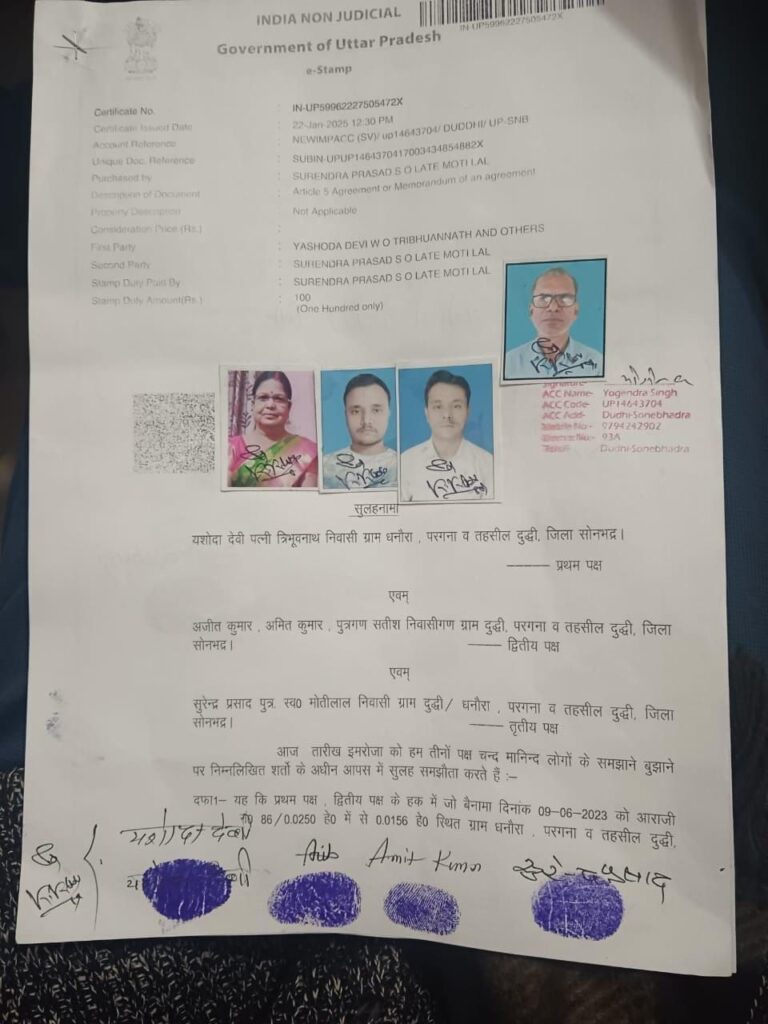 INDIA NON JUDICIAL
IN-UP59962227505472X
Government of Uttar Pradesh
e-Stamp
Certificate No. : IN-UP59962227505472X
Certificate Issued Date : 22-Jan-2025 12:30 PM
Account Reference : NEWIMPACC (SV)/ up14643704/ DUDDHI/ UP-SNB
Unique Doc. Reference : SUBIN-UPUP1464370417003434854882X
Purchased by : SURENDRA PRASAD S O LATE MOTI LAL
Description of Document : Article 5 Agreement or Memorandum of an agreement
Property Description : Not Applicable
Consideration Price (Rs.) :
First Party : YASHODA DEVI W O TRIBHUANNATH AND OTHERS
Second Party : SURENDRA PRASAD S O LATE MOTI LAL
Stamp Duty Paid By : SURENDRA PRASAD S O LATE MOTI LAL
Stamp Duty Amount(Rs.) : 100
(One Hundred only)
Signature-
ACC Name- Yogendra Singh
ACC Code- UP14643704
ACC Add- Dudhi-Sonebhadra
9794242902
93A
Dudhi-Sonebhadra
सुलहनामा
यशोदा देवी पत्नी त्रिभूवनाथ निवासी ग्राम धनौरा , परगना व तहसील दुद्धी, जिला सोनभद्र।
----- प्रथम पक्ष
एवम्
अजीत कुमार , अमित कुमार , पुत्रगण सतीश निवासीगण ग्राम दुद्धी, परगना व तहसील दुद्धी, जिला
सोनभद्र। ---- द्वितीय पक्ष
एवम्
सुरेन्द्र प्रसाद पुत्र. स्व0 मोतीलाल निवासी ग्राम दुद्धी/ धनौरा , परगना व तहसील दुद्धी, जिला
सोनभद्र। ---- तृतीय पक्ष
आज तारीख इमरोजा को हम तीनों पक्ष चन्द मानिन्द लोगों के समझाने बुझाने
पर निम्नलिखित शर्तो के अधीन आपस में सुलह समझौता करते हैं :–
दफा1– यह कि प्रथम पक्ष , द्वितीय पक्ष के हक में जो बैनामा दिनांक 09-06-2023 को आराजी
न0 86/0.0250 हे0 में से 0.0156 हे0 स्थित ग्राम धनौरा , परगना व तहसील दुद्धी,
यशोदा देवी
Amit Kumar